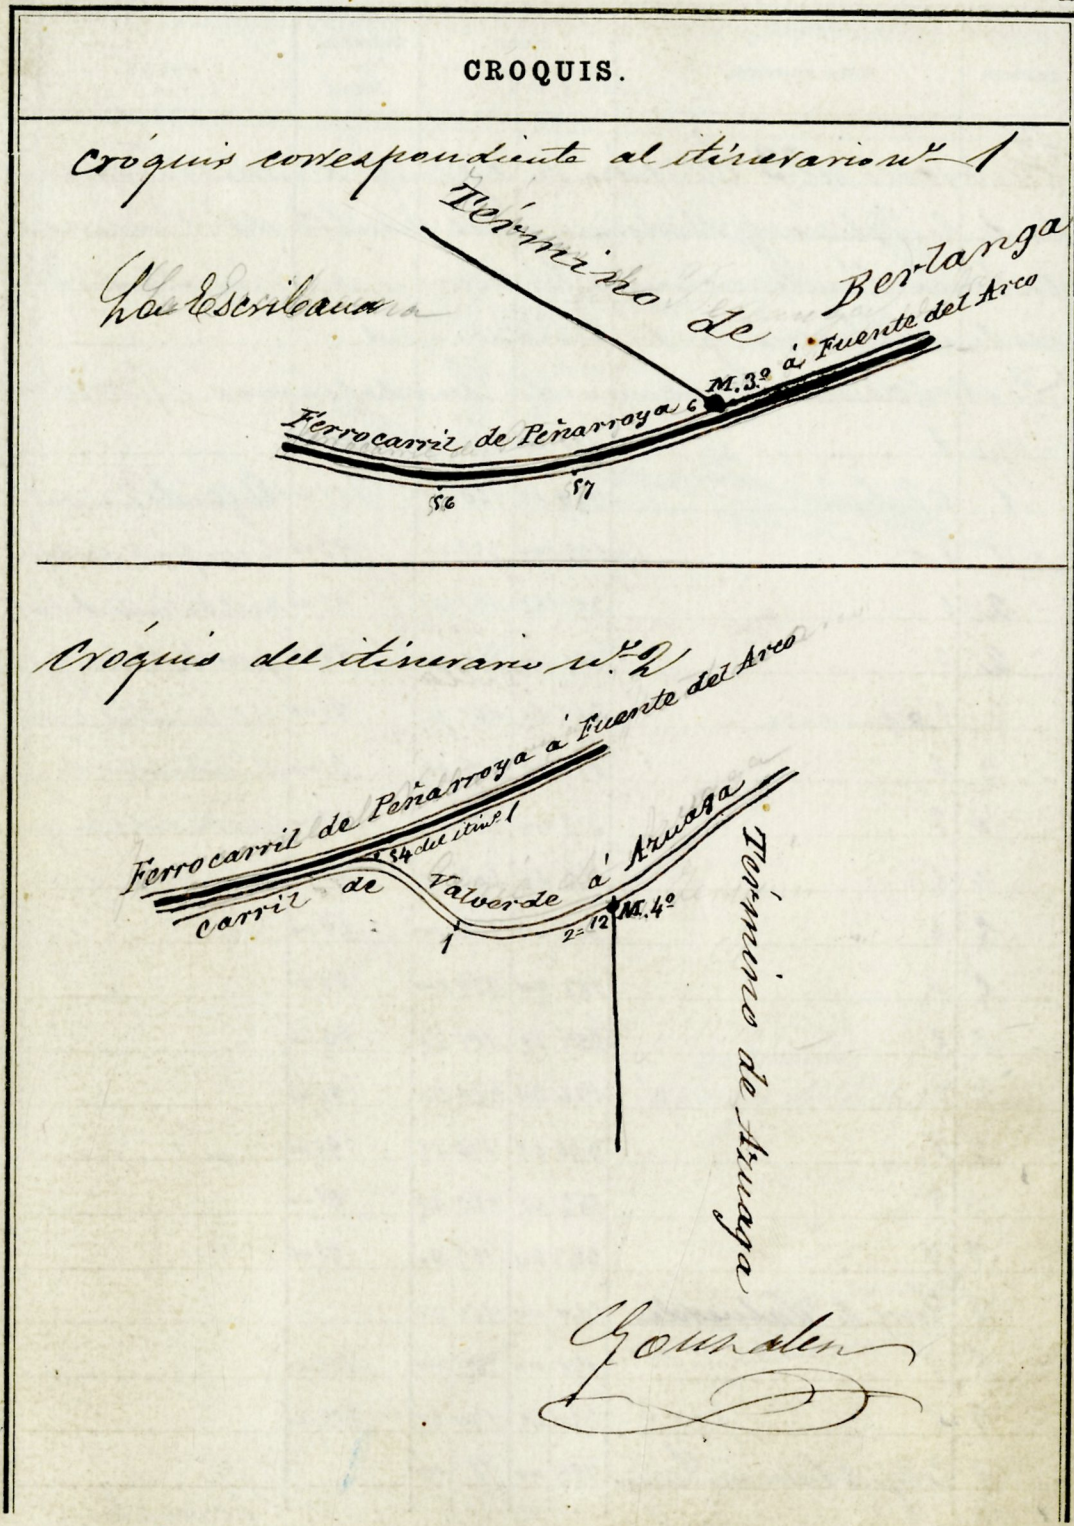 CROQUIS.
Cróquis correspondiente al itinerario nº 1
Término de Berlanga
La Escribana
Ferrocarril de Peñarroya á Fuente del Arco
6 M. 3.º
56
57
Cróquis del itinerario nº 2
Ferrocarril de Peñarroya á Fuente del Arco
54 del itinº 1
Carril de Valverde á Azuaga
1
2=12 M. 4º
Término de Azuaga